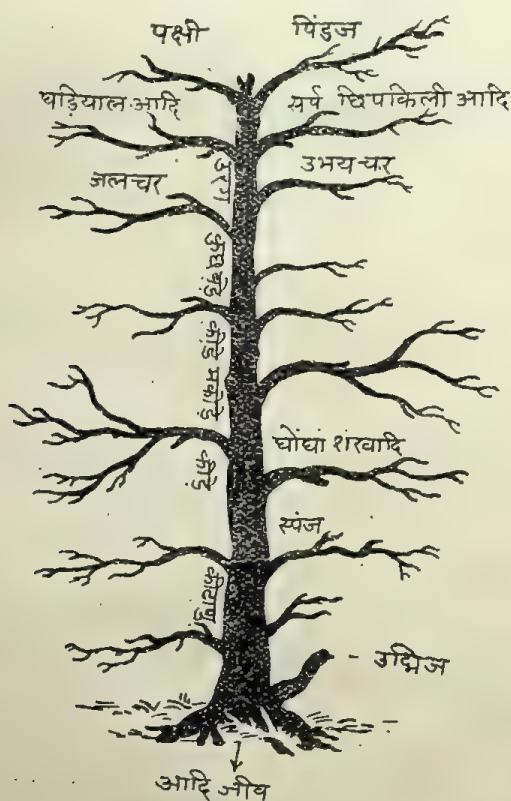 पक्षी
पिंडज
घड़ियाल आदि
सर्प छिपकिली आदि
उरग
उभय चर
जलचर
कीड़े मकोड़े
घोंघा शंखादि
कीड़े
स्पंज
कीटाणु
उद्भिज
आदि जीव